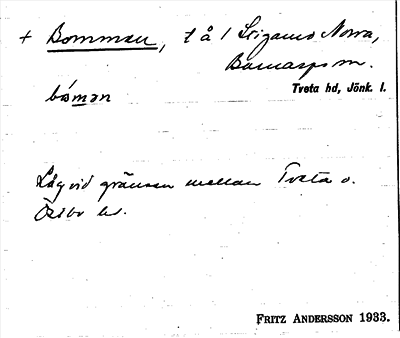 + Bommen, t å 1 Stigamo Norra,
Barnarps sn.
Tveta hd, Jönk. l.
bómən
Låg vid gränsen mellan Tveta o.
Östbo hd.
FRITZ ANDERSSON 1933.